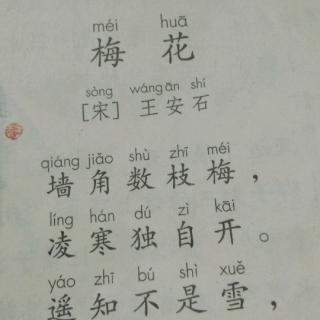 méi huā
梅花
sòng wáng ān shí
[宋] 王安石
qiáng jiǎo shù zhī méi
墙角数枝梅，
líng hán dú zì kāi
凌寒独自开。
yáo zhī bú shì xuě
遥知不是雪，